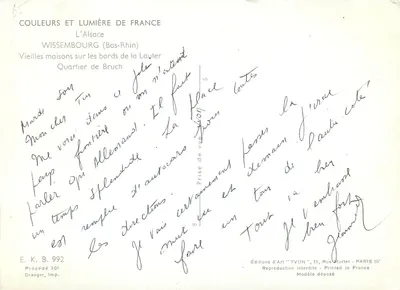 COULEURS ET LUMIÈRE DE FRANCE
L'Alsace
WISSEMBOURG (Bas-Rhin)
Vieilles maisons sur les bords de la Lauter
Quartier de Bruch
Mardi soir
Mon cher Tin
Me voici dans ce joli
pays frontière où on n'entend
parler qu'Allemand. Il fait
un temps splendide. La place
est remplie d'autocars pour toutes
les directions.
Je vais certainement passer la
nuit ici et demain j'irai
faire un tour de l'autre côté!
Tout va bien
Je t'embrasse
bien fort
E. K. B. 992
Editions d'Art "YVON", 15, Rue Martel - PARIS 10e
Reproduction interdite - Printed in France
Modèle déposé